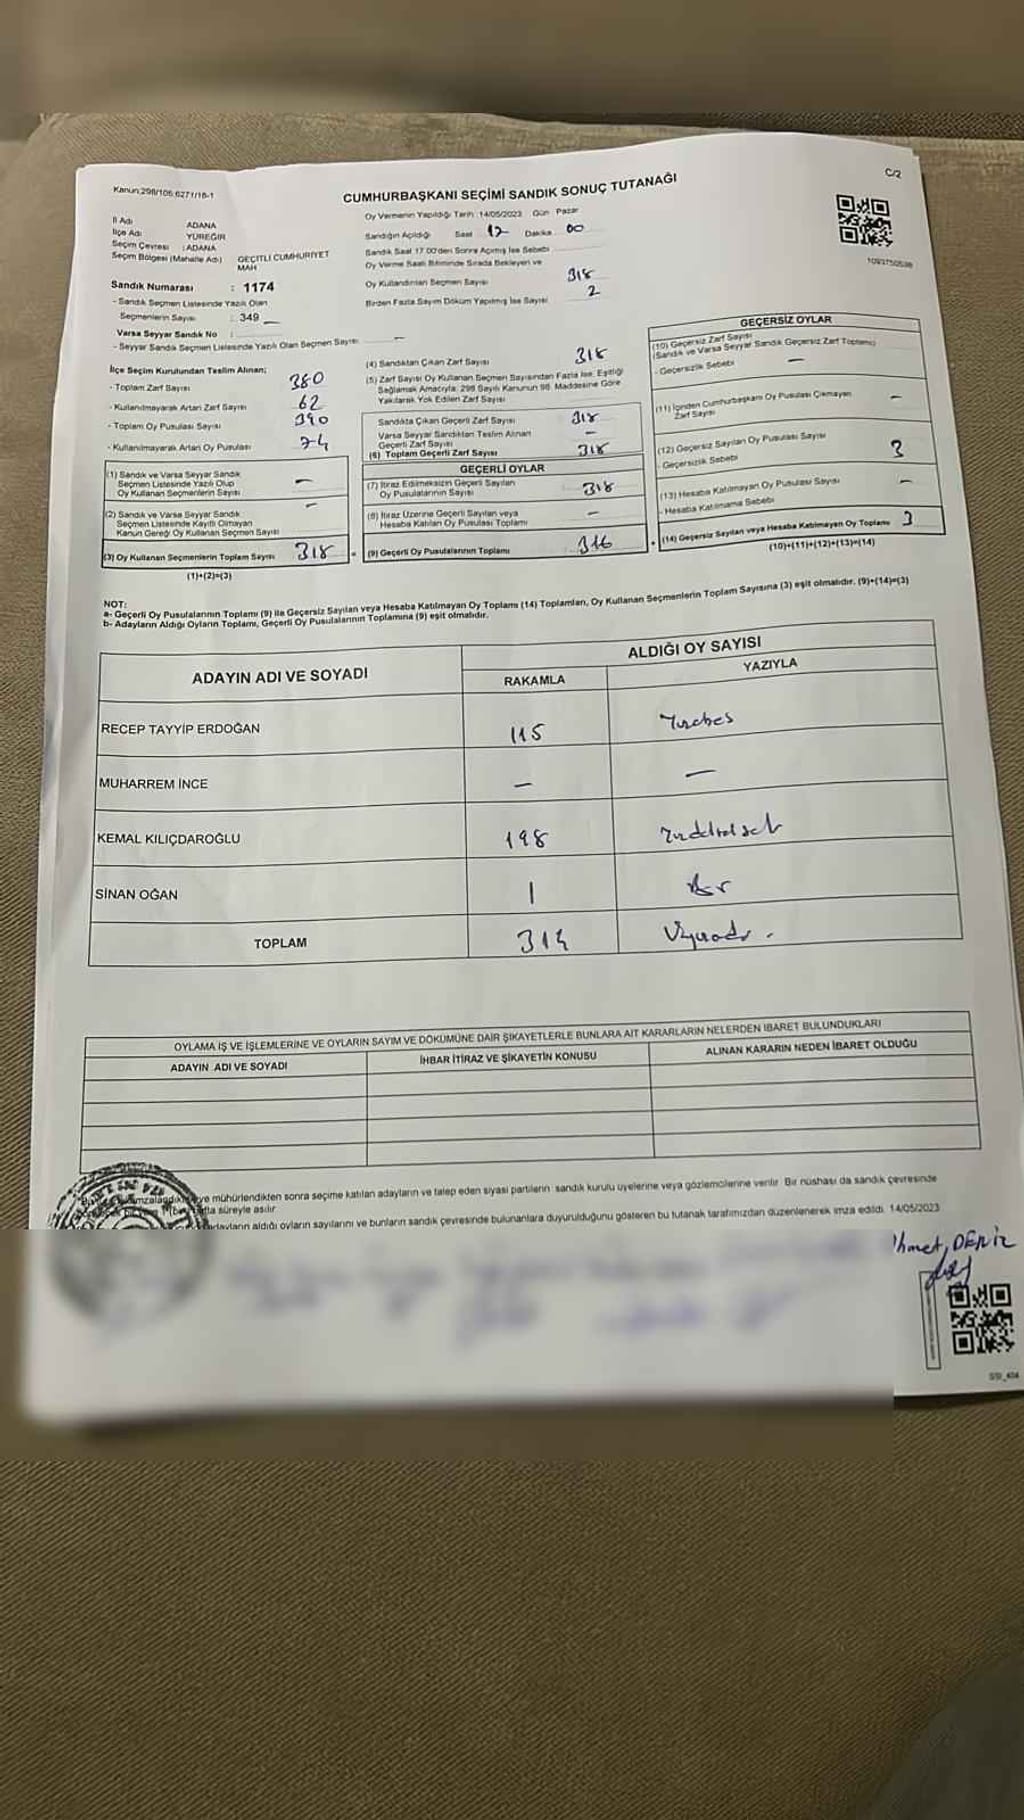 Kanun:298/105;6271/16-1
C/2
CUMHURBAŞKANI SEÇİMİ SANDIK SONUÇ TUTANAĞI
İl Adı ADANA
İlçe Adı YÜREĞİR
Seçim Çevresi : ADANA
Seçim Bölgesi (Mahalle Adı) GEÇİTLİ CUMHURİYET MAH
Sandık Numarası : 1174
- Sandık Seçmen Listesinde Yazılı Olan
Seçmenlerin Sayısı : 349
Varsa Seyyar Sandık No :
- Seyyar Sandık Seçmen Listesinde Yazılı Olan Seçmen Sayısı —
Oy Vermenin Yapıldığı Tarih :14/05/2023 Gün Pazar
Sandığın Açıldığı Saat 17 Dakika 00
Sandık Saat 17:00'den Sonra Açılmış İse Sebebi
Oy Verme Saati Bitiminde Sırada Bekleyen ve
Oy Kullandırılan Seçmen Sayısı 318
Birden Fazla Sayım Döküm Yapılmış İse Sayısı 2
İlçe Seçim Kurulundan Teslim Alınan;
- Toplam Zarf Sayısı 380
- Kullanılmayarak Artan Zarf Sayısı 62
- Toplam Oy Pusulası Sayısı 390
- Kullanılmayarak Artan Oy Pusulası 74
(1) Sandık ve Varsa Seyyar Sandık
Seçmen Listesinde Yazılı Olup
Oy Kullanan Seçmenlerin Sayısı —
(2) Sandık ve Varsa Seyyar Sandık
Seçmen Listesinde Kayıtlı Olmayan
Kanun Gereği Oy Kullanan Seçmen Sayısı —
(3) Oy Kullanan Seçmenlerin Toplam Sayısı 318
(1)+(2)=(3)
(4) Sandıktan Çıkan Zarf Sayısı 318
(5) Zarf Sayısı Oy Kullanan Seçmen Sayısından Fazla İse, Eşitliği
Sağlamak Amacıyla, 298 Sayılı Kanunun 98. Maddesine Göre
Yakılarak Yok Edilen Zarf Sayısı
Sandıkta Çıkan Geçerli Zarf Sayısı 318
Varsa Seyyar Sandıktan Teslim Alınan
Geçerli Zarf Sayısı —
(6) Toplam Geçerli Zarf Sayısı 318
GEÇERLİ OYLAR
(7) İtiraz Edilmeksizin Geçerli Sayılan
Oy Pusulalarının Sayısı 318
(8) İtiraz Üzerine Geçerli Sayılan veya
Hesaba Katılan Oy Pusulası Toplamı —
(9) Geçerli Oy Pusulalarının Toplamı 316
GEÇERSİZ OYLAR
(10) Geçersiz Zarf Sayısı
(Sandık ve Varsa Seyyar Sandık Geçersiz Zarf Toplamı)
- Geçersizlik Sebebi —
(11) İçinden Cumhurbaşkanı Oy Pusulası Çıkmayan
Zarf Sayısı —
(12) Geçersiz Sayılan Oy Pusulası Sayısı 3
- Geçersizlik Sebebi
(13) Hesaba Katılmayan Oy Pusulası Sayısı —
- Hesaba Katılmama Sebebi
(14) Geçersiz Sayılan veya Hesaba Katılmayan Oy Toplamı 3
(10)+(11)+(12)+(13)=(14)
NOT:
a- Geçerli Oy Pusulalarının Toplamı (9) ile Geçersiz Sayılan veya Hesaba Katılmayan Oy Toplamı (14) Toplamları, Oy Kullanan Seçmenlerin Toplam Sayısına (3) eşit olmalıdır. (9)+(14)=(3)
b- Adayların Aldığı Oyların Toplamı, Geçerli Oy Pusulalarının Toplamına (9) eşit olmalıdır.
ADAYIN ADI VE SOYADI ALDIĞI OY SAYISI
RAKAMLA YAZIYLA
RECEP TAYYİP ERDOĞAN 115
MUHARREM İNCE — —
KEMAL KILIÇDAROĞLU 198
SİNAN OĞAN 1 Bir
TOPLAM 314
OYLAMA İŞ VE İŞLEMLERİNE VE OYLARIN SAYIM VE DÖKÜMÜNE DAİR ŞİKAYETLERLE BUNLARA AİT KARARLARIN NELERDEN İBARET BULUNDUKLARI
ADAYIN ADI VE SOYADI İHBAR İTİRAZ VE ŞİKAYETİN KONUSU ALINAN KARARIN NEDEN İBARET OLDUĞU
ve mühürlendikten sonra seçime katılan adayların ve talep eden siyasi partilerin sandık kurulu üyelerine veya gözlemcilerine verilir. Bir nüshası da sandık çevresinde
süreyle asılır.
adayların aldığı oyların sayılarını ve bunların sandık çevresinde bulunanlara duyurulduğunu gösteren bu tutanak tarafımızdan düzenlenerek imza edildi. 14/05/2023
DENİZ